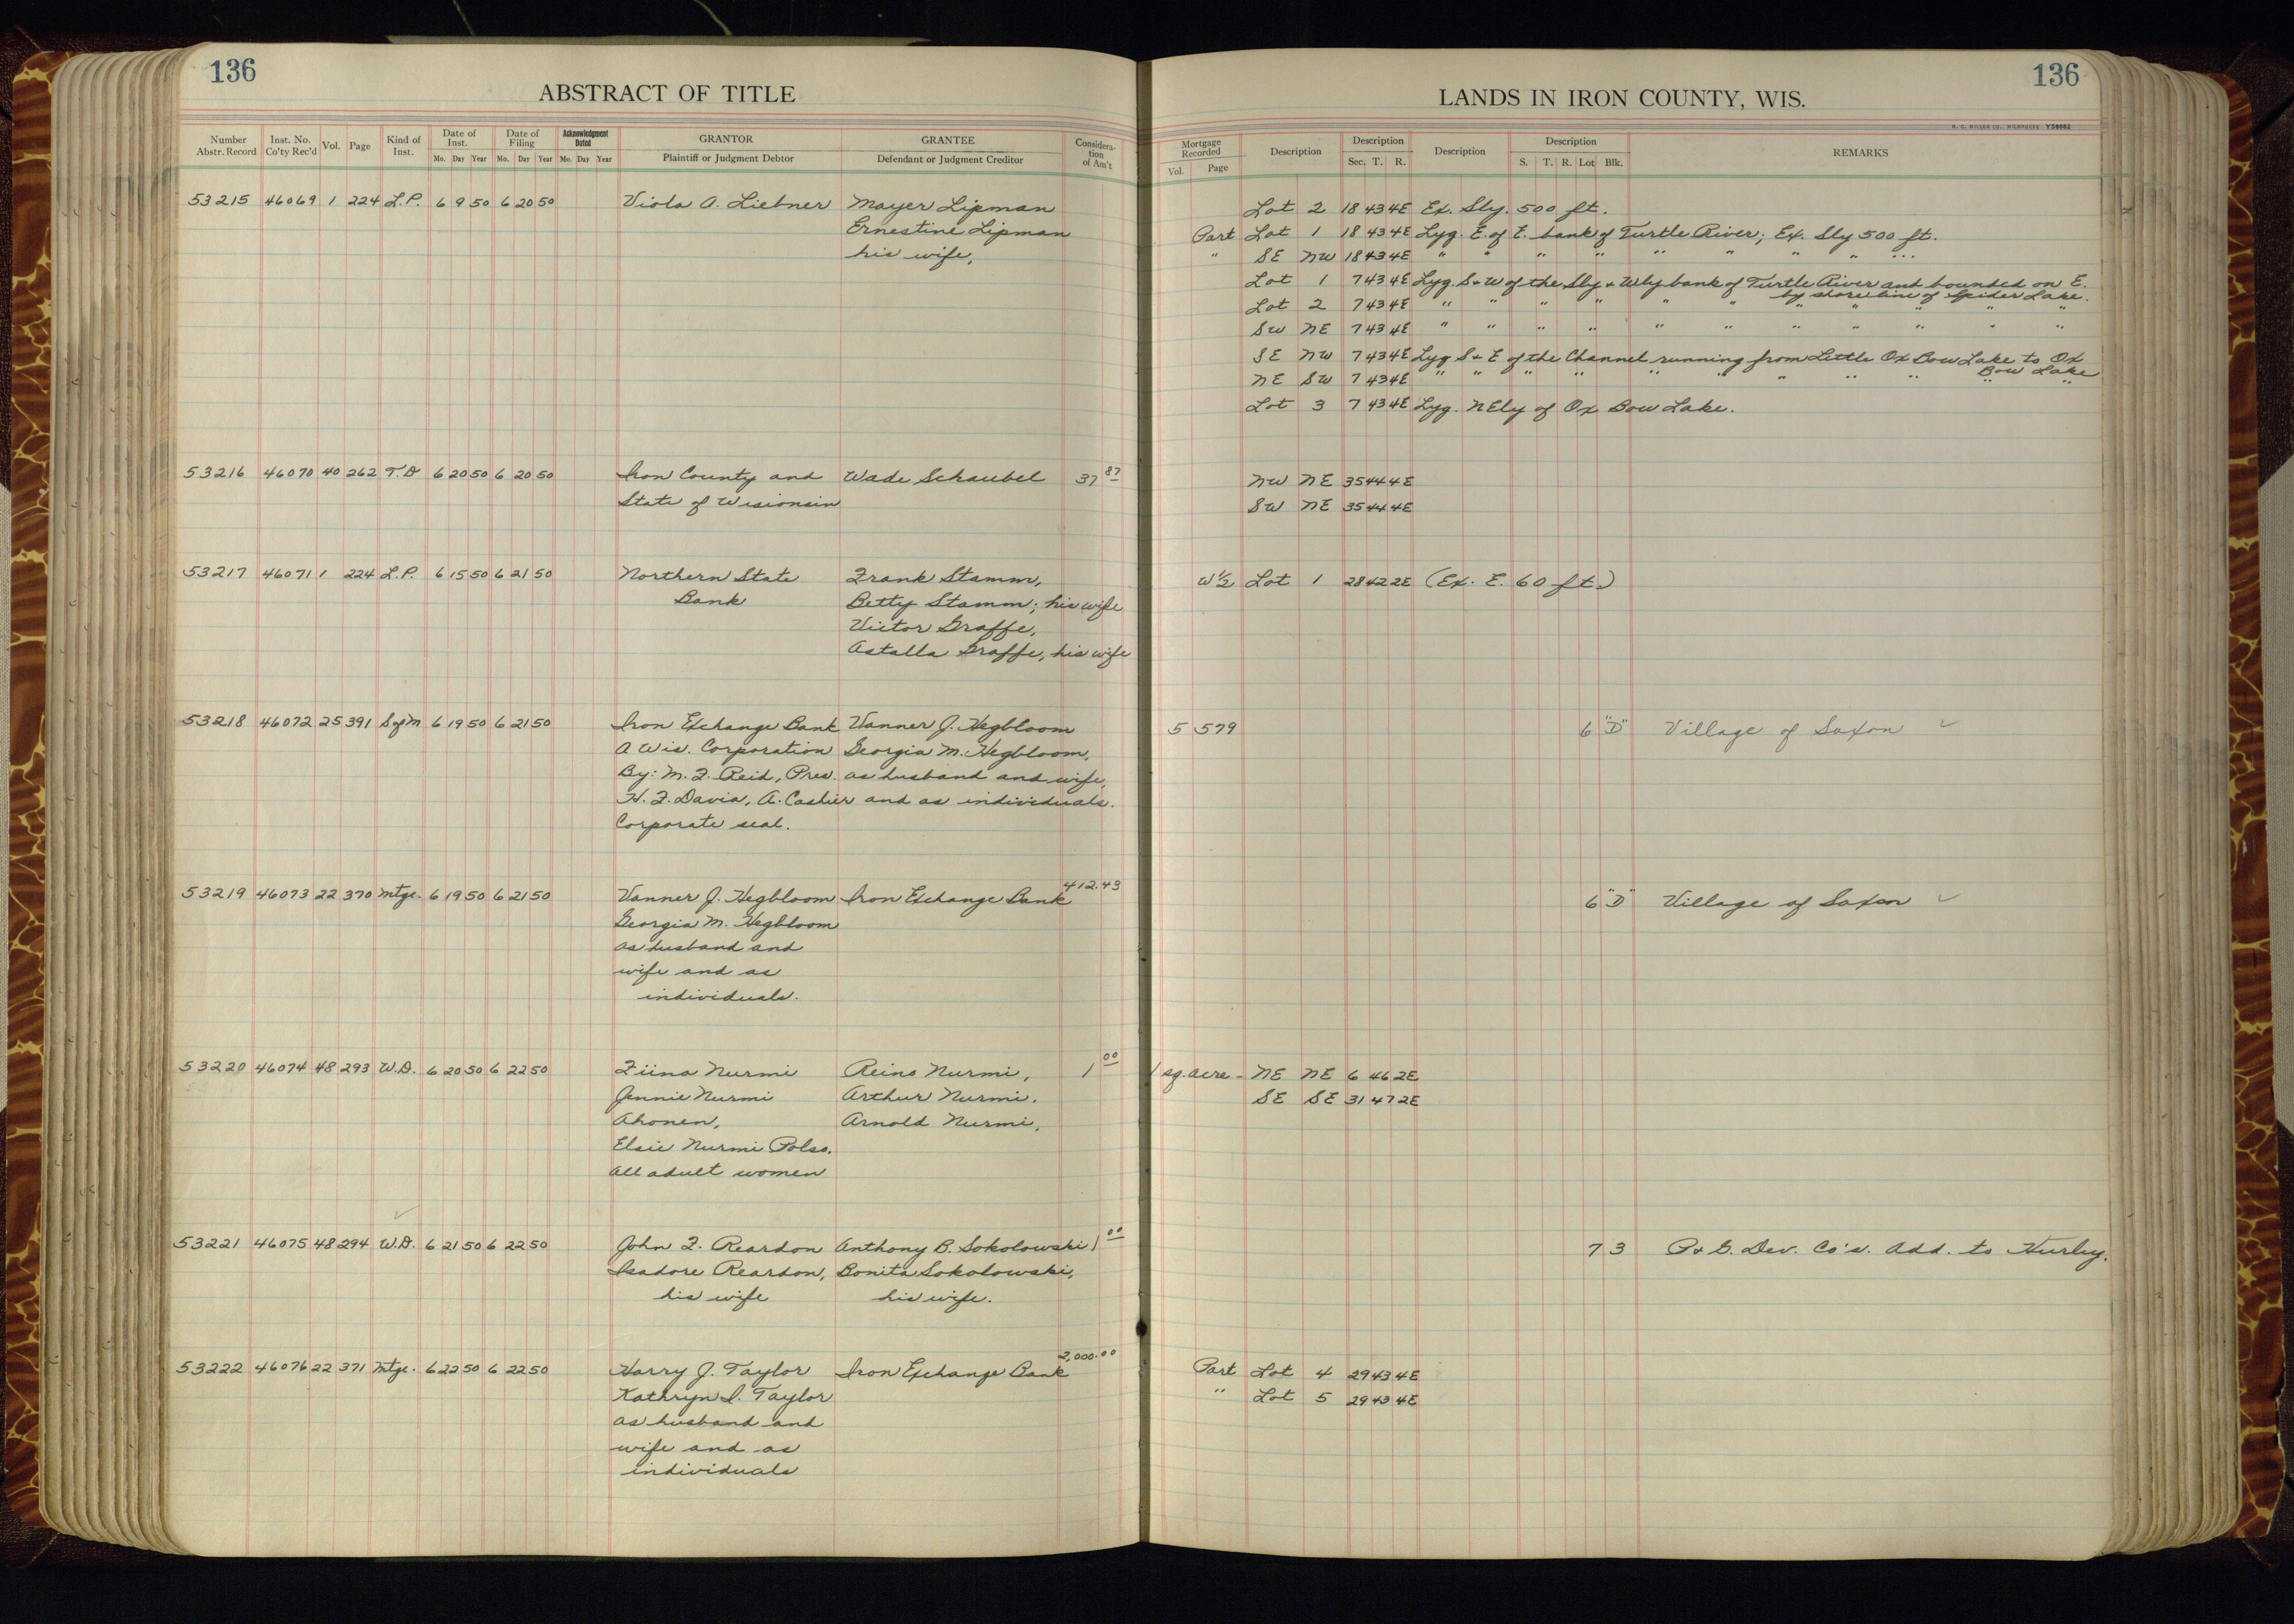 136
ABSTRACT OF TITLE
Number Abstr. Record | Inst. No. Co'ty Rec'd | Vol. | Page | Kind of Inst. | Date of Inst. Mo. Day Year | Date of Filing Mo. Day Year | Acknowledgment Dated Mo. Day Year | GRANTOR Plaintiff or Judgment Debtor | GRANTEE Defendant or Judgment Creditor | Consideration of Am't
53215 46069 1 224 L.P. 6 9 50 6 20 50 Viola A. Liebner Mayer Lipman
Ernestine Lipman
his wife,
53216 46070 40 262 T.D 6 20 50 6 20 50 Iron County and Wade Schaubel 37 87
State of Wisionsin
53217 46071 1 224 L.P. 6 15 50 6 21 50 Northern State Frank Stamm,
Bank Betty Stamm; his wife
Victor Graffe,
Astalla Graffe, his wife
53218 46072 25 391 SofM 6 19 50 6 21 50 Iron Exchange Bank Vanner J. Hegbloom
A Wis. Corporation Georgia M. Hegbloom,
By: M. F. Reid, Pres. as husband and wife,
H. F. Davis, A. Cashier and as individuals.
Corporate seal.
53219 46073 22 370 Mtge. 6 19 50 6 21 50 Vanner J. Hegbloom Iron Exchange Bank 412.43
Georgia M. Hegbloom
as husband and
wife and as
individuals.
53220 46074 48 293 W.D. 6 20 50 6 22 50 Fiina Nurmi Reino Nurmi, 1 00
Jennie Nurmi Arthur Nurmi,
Ahonen, Arnold Nurmi,
Elsie Nurmi Polso,
All adult women
53221 46075 48 294 W.D. 6 21 50 6 22 50 John F. Reardon Anthony B. Sokolowski 1 00
Isadore Reardon, Bonita Sokolowski,
his wife his wife.
53222 46076 22 371 Mtge. 6 22 50 6 22 50 Harry J. Taylor Iron Exchange Bank 2,000.00
Kathryn I. Taylor
as husband and
wife and as
individuals
136
LANDS IN IRON COUNTY, WIS.
H. C. MILLER CO., MILWAUKEE Y56662
Mortgage Recorded Vol. Page | Description | Description Sec. T. R. | Description | Description S. T. R. Lot Blk. | REMARKS
Lot 2 18 43 4E Ex. Sly. 500 ft.
Part Lot 1 18 43 4E Lyg. E. of E. bank of Turtle River; Ex. Sly 500 ft.
" SE NW 18 43 4E " " " " " " " " " "
Lot 1 7 43 4E Lyg. S+W of the Sly + Wly bank of Turtle River and bounded on E.
by shore line of Spider Lake.
Lot 2 7 43 4E " " " " " " " " " " "
SW NE 7 43 4E " " " " " " " " " " "
SE NW 7 43 4E Lyg S+E of the Channel running from Little Ox Bow Lake to Ox
Bow Lake
NE SW 7 43 4E " " " " " " " " " " "
Lot 3 7 43 4E Lyg. NEly of Ox Bow Lake.
NW NE 35 44 4E
SW NE 35 44 4E
W½ Lot 1 28 42 2E (Ex. E. 60 ft.)
5 579 6 "D" Village of Saxon ✓
6 "D" Village of Saxon ✓
1 sq. acre - NE NE 6 46 2E
SE SE 31 47 2E
7 3 P+G. Dev. Co's. Add. to Hurley.
Part Lot 4 29 43 4E
" Lot 5 29 43 4E